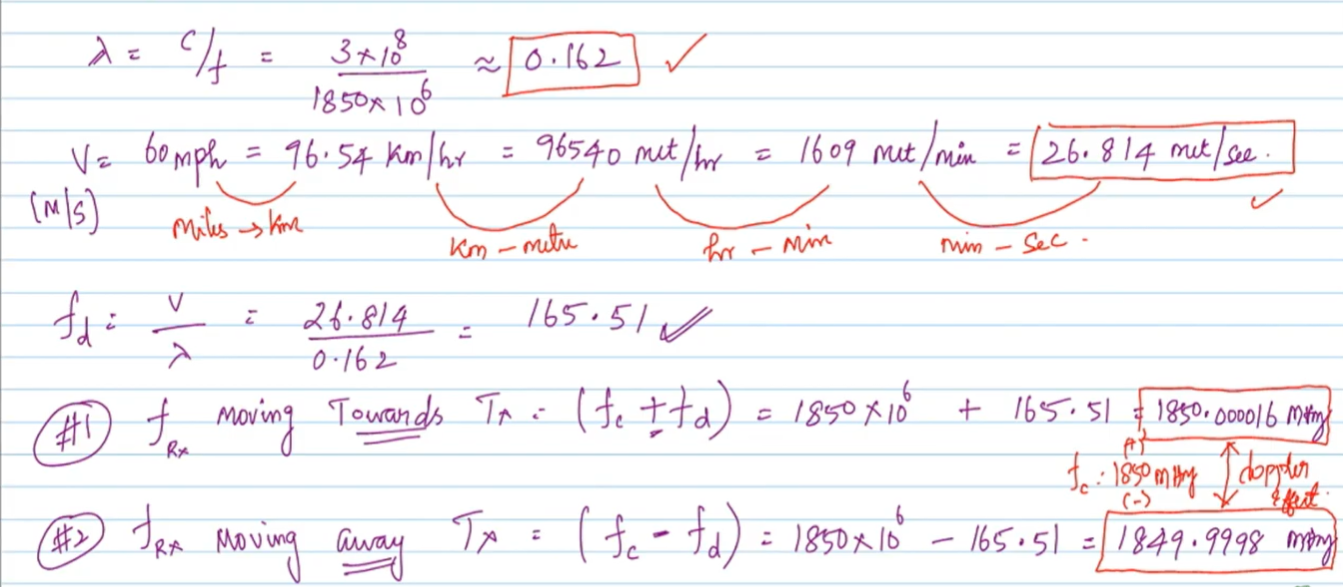 λ = c/f = 3×10⁸ / 1850×10⁶ ≈ 0.162 ✓
V = 60 mph = 96.54 Km/hr = 96540 met/hr = 1609 met/min = 26.814 met/sec. ✓
(M/S) Miles → Km Km – metre hr – Min min – Sec.
f_d = V/λ = 26.814 / 0.162 = 165.51 ✓
#1 f_Rx moving Towards Tx = (f_c + f_d) = 1850×10⁶ + 165.51 = 1850.000016 MHz
(+)
f_c : 1850 MHz doppler effect.
(-)
#2 f_Rx Moving away Tx = (f_c - f_d) = 1850×10⁶ – 165.51 = 1849.9998 MHz